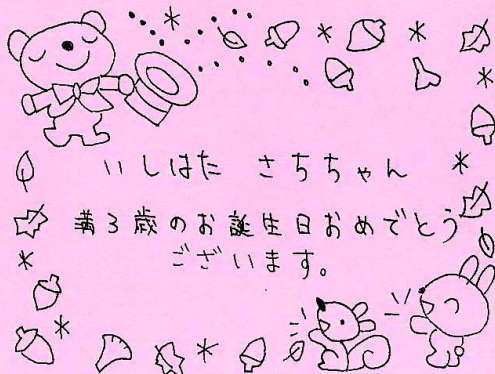 いしはた さちちゃん
満3歳のお誕生日おめでとう
ございます。